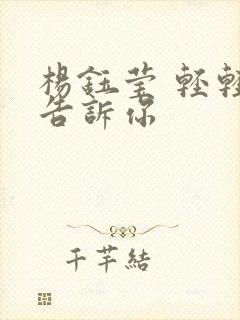 楊鈺莹 輕輕
告訴你
千芊結